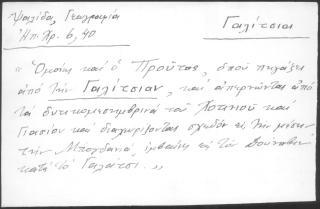 Ψαλίδα, Γεωγραφία
Ηπ. Χρ. 6, 40
Γαλίτσια
" Ὁμοίως καὶ ὁ Προῦτος, ὁποῦ πηγάζει
ἀπὸ τὴν Γαλίτσιαν, καὶ ἀπερνῶντας ἀπὸ
τὰ δυτικομεσημβρινὰ τοῦ Χοτινιοῦ καὶ
Γιασίου καὶ διαχωρίζοντας σχεδὸν εἰς τὴν μέσην
τὴν Μπογδανιά, ἐμβαίνει εἰς τὸν Δούναβιν
κατὰ τὸ Γαλάτσι. "